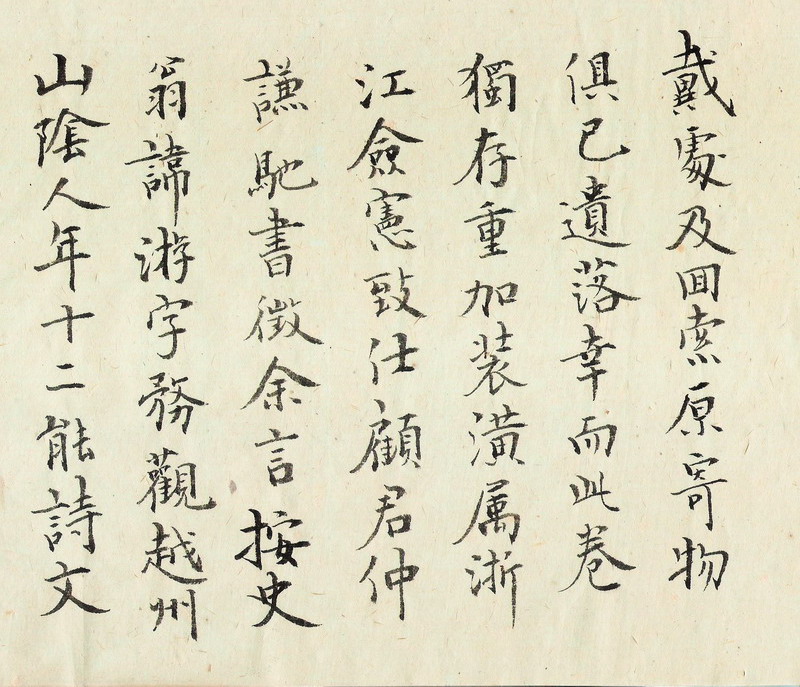 戴處及回索原寄物
俱已遺落幸而此卷
獨存重加装潢属浙
江僉憲致仕顧君仲
謙馳書徵余言按史
翁諱游字務觀越州
山陰人年十二能詩文